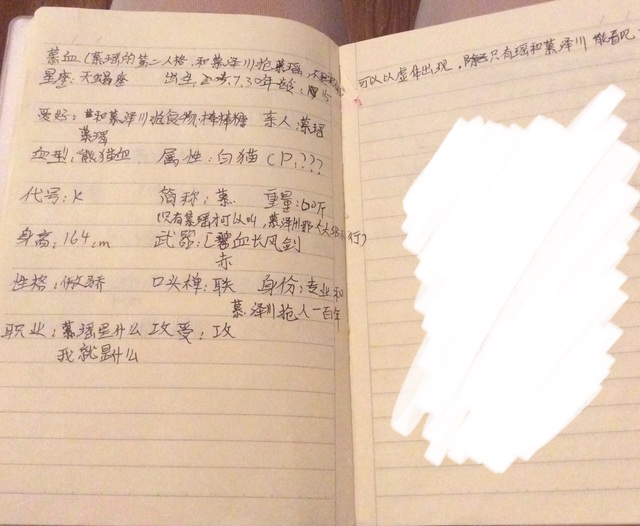 慕血(慕瑶的第二人格,和慕泽川抢慕瑶,
星座:天蝎座 出生 7.30年龄:
爱好:和慕泽川抢食物,棒棒糖 亲人:慕瑶
慕瑶
血型:熊猫血 属性:白猫 CP:???
代号:K 简称:慕 重量:60斤
(只有慕瑶才可以叫,慕泽川那个大
身高:164cm 武器:血长风剑 行)
赤
性格:傲骄 口头禅: 身份:专业和
慕泽川抢人一百年
职业:慕瑶是什么 攻受:攻
我就是什么
可以以虚体出现,除 只有瑶和慕泽川能看见